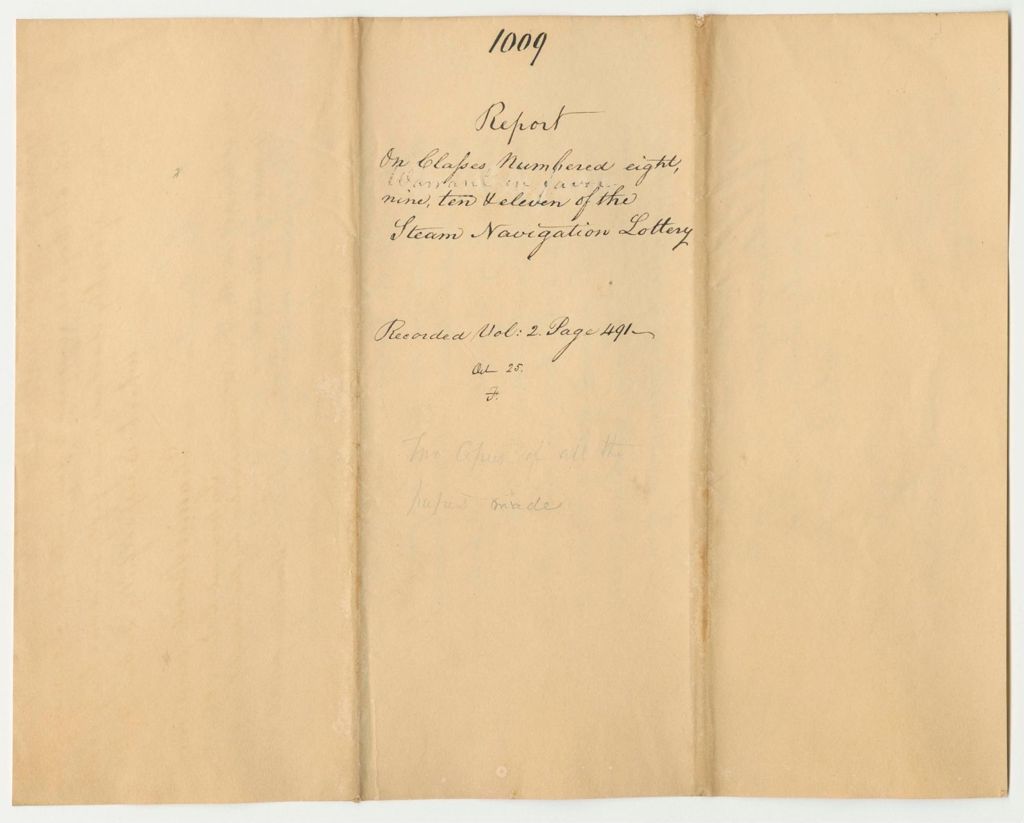 1009
Report
On Classes, Numbered eight,
Warrant in favor
nine, ten & eleven of the
Steam Navigation Lottery
Recorded Vol: 2. Page 491
Oct 25.
F.
Two Copies of all the
papers made